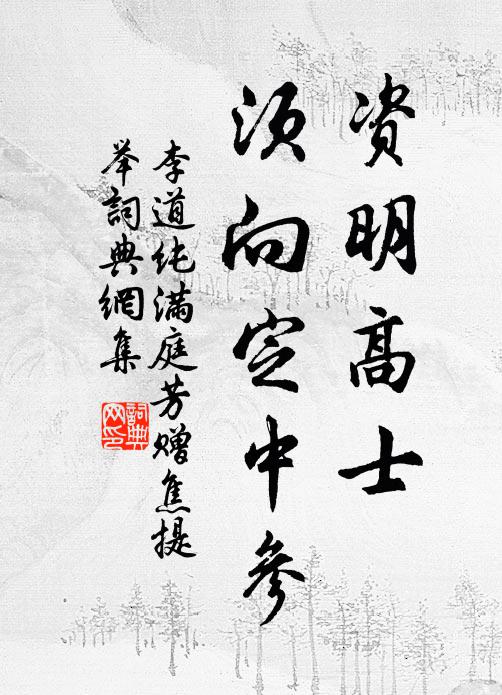 资明高士
须向定中参
李道纯满庭芳赠焦提
举词典網集
詞典
网印